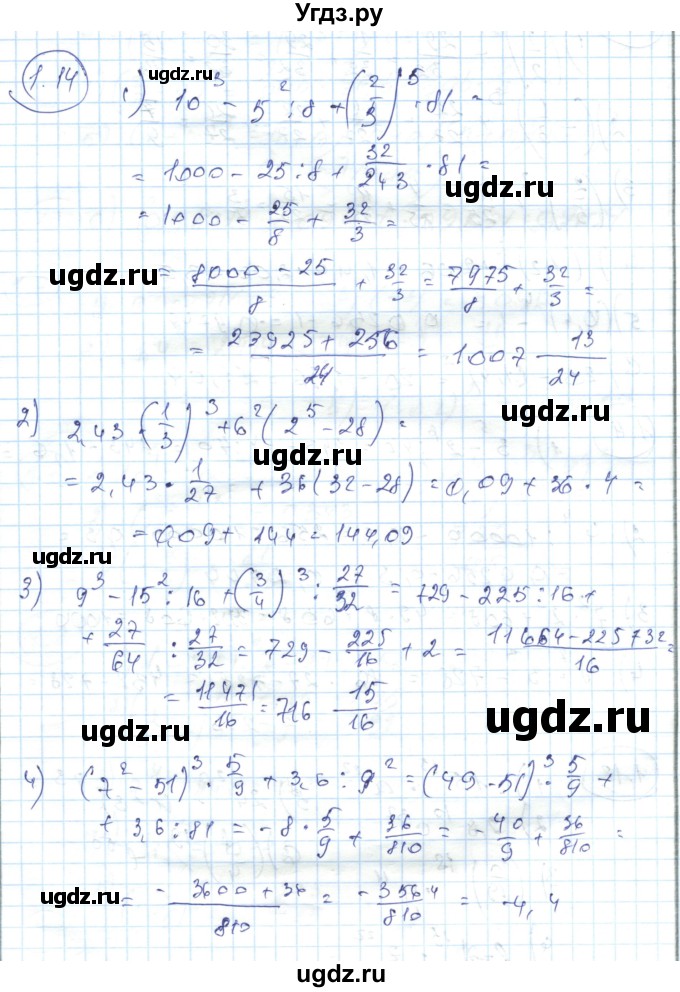 Угдз.ру
1.14
ugdz.ru
1) 10³ - 5² : 8 + (2/3)⁵ · 81 =
= 1000 - 25 : 8 + 32/243 · 81 =
ugdz.ru
= 1000 - 25/8 + 32/3 =
ugdz.ru
= (8000 - 25)/8 + 32/3 = 7975/8 + 32/3 =
= (23925 + 256)/24 = 1007 13/24
ugdz.ru
2) 2,43 · (1/3)³ + 6² (2⁵ - 28) =
ugdz.ru
= 2,43 · 1/27 + 36 (32 - 28) = 0,09 + 36 · 4 =
= 0,09 + 144 = 144,09
ugdz.ru
3) 9³ - 15² : 16 + (3/4)³ : 27/32 = 729 - 225 : 16 +
+ 27/64 : 27/32 = 729 - 225/16 + 2 = (11664 -225 + 32)/16 =
= 11471/16 = 716 15/16
ugdz.ru
ugdz.ru
4) (7² - 51)³ · 5/9 + 3,6 : 9² = (49 - 51)³ · 5/9 +
+ 3,6 : 81 = -8 · 5/9 + 36/810 = -40/9 + 36/810 =
= (-3600 + 36)/810 = -3564/810 = -4,4
ugdz.ru
ugdz.ru
ugdz.ru